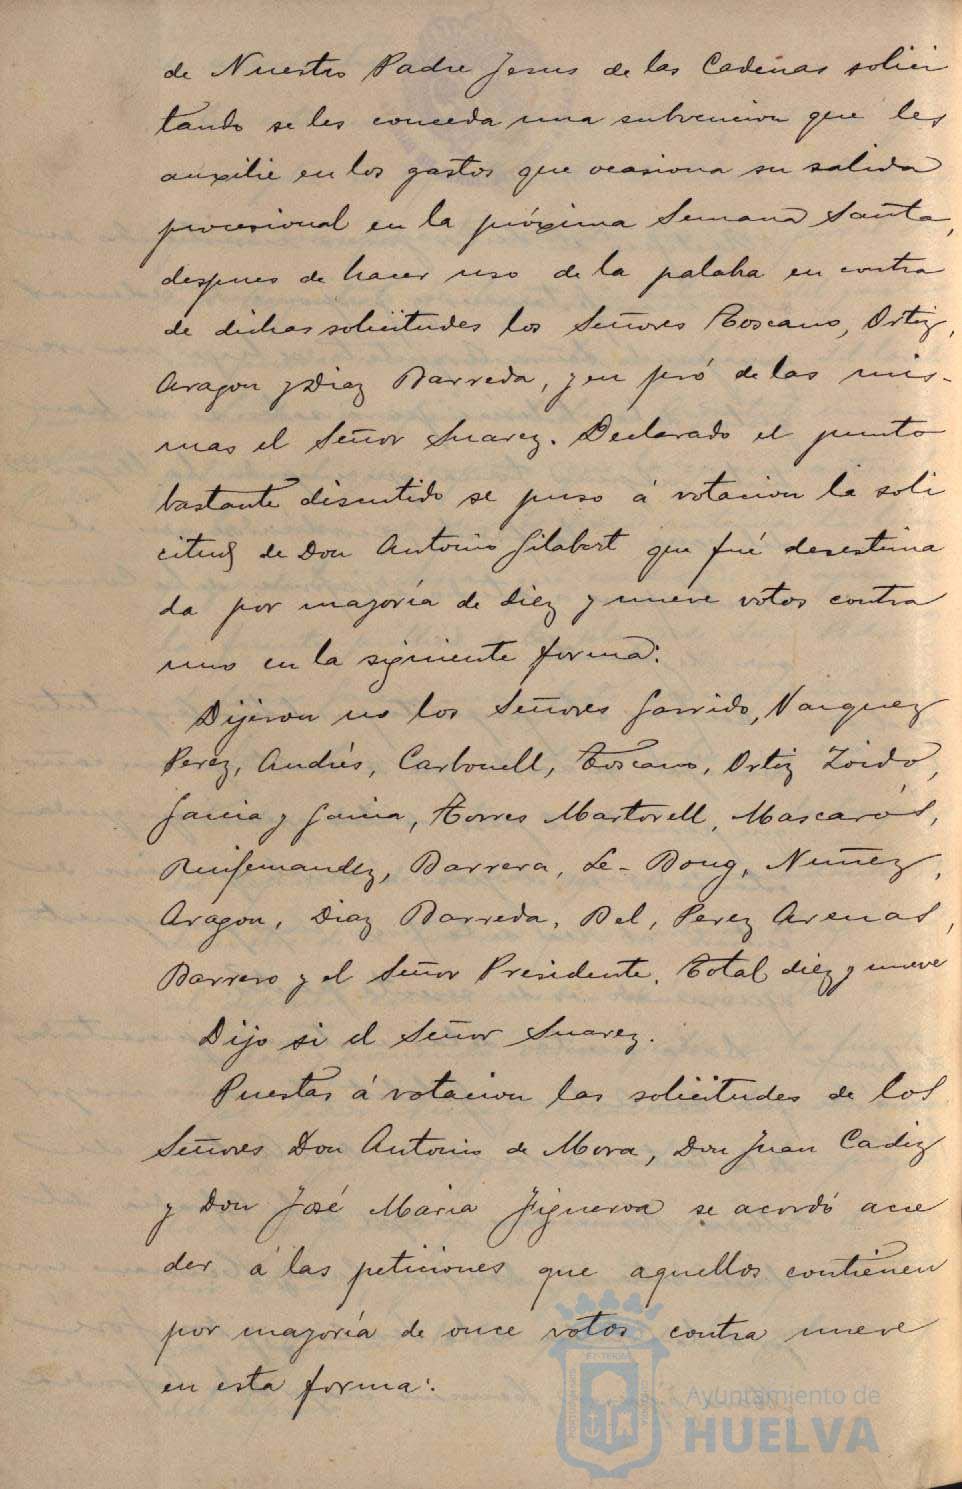 de Nuestro Padre Jesus de las Cadenas solici
tando se les conceda una subvencion que les
auxilie en los gastos que ocasiona su salida
procesional en la próxima Semana Santa,
despues de hacer uso de la palaba en contra
de dichas solicitudes los Señores Toscano, Ortiz,
Aragon y Diaz Barreda, y en pró de las mis-
mas el Señor Suarez. Declarado el punto
bastante discutido se puso á votacion la soli
citud de Don Antonio Gilabert que fué desestima
da por mayoría de diez y nueve votos contra
uno en la siguiente forma:
Dijeron no los Señores Garrido, Vazquez
Perez, Andrés, Carbonell, Toscano, Ortiz Zoido,
Garcia y Garcia, Torres Martorell, Mascarós,
Ruifernandez, Barrera, Le-Bourg, Nuñez,
Aragon, Diaz Barreda, Bel, Perez Arenas,
Barrero y el Señor Presidente. Total diez y nueve
Dijo si el Señor Suarez.
Puestas á votacion las solicitudes de los
Señores Don Antonio de Mora, Don Juan Cadiz
y Don José Maria Figueroa se acordó acce
der á las peticiones que aquellos contienen
por mayoría de once votos contra nueve
en esta forma:.
Ayuntamiento de
HUELVA